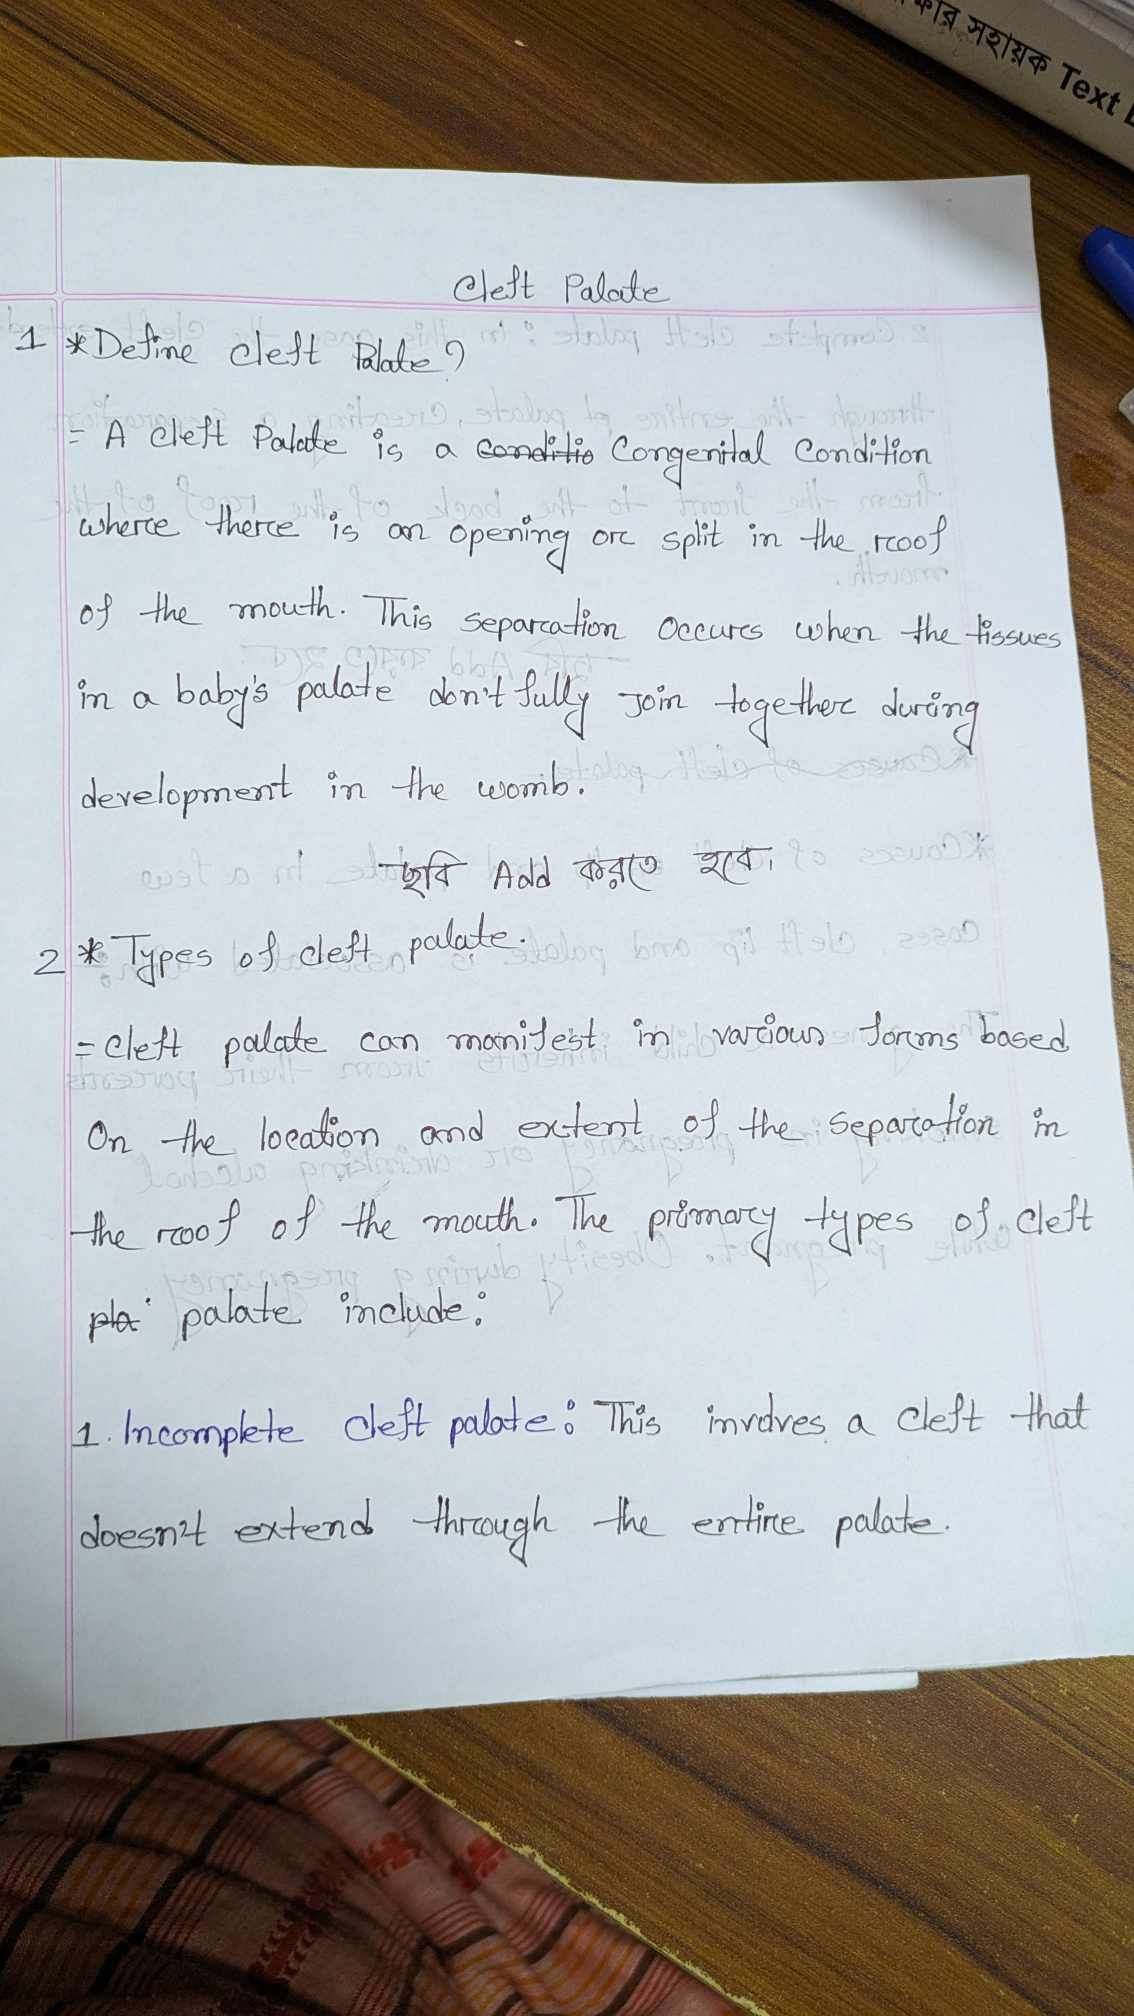 কার সহায়ক Text
Cleft Palate
1 * Define cleft Palate?
= A cleft Palate is a conditio Congenital Condition
where there is an opening or split in the roof
of the mouth. This separation occurs when the tissues
in a baby's palate don't fully Join together during
development in the womb.
ছবি Add করতে হবে।
2 * Types of cleft palate.
= Cleft palate can manifest in various forms based
On the location and extent of the separation in
the roof of the mouth. The primary types of cleft
pla palate include:
1. Incomplete cleft palate: This involves a cleft that
doesn't extend through the entire palate.